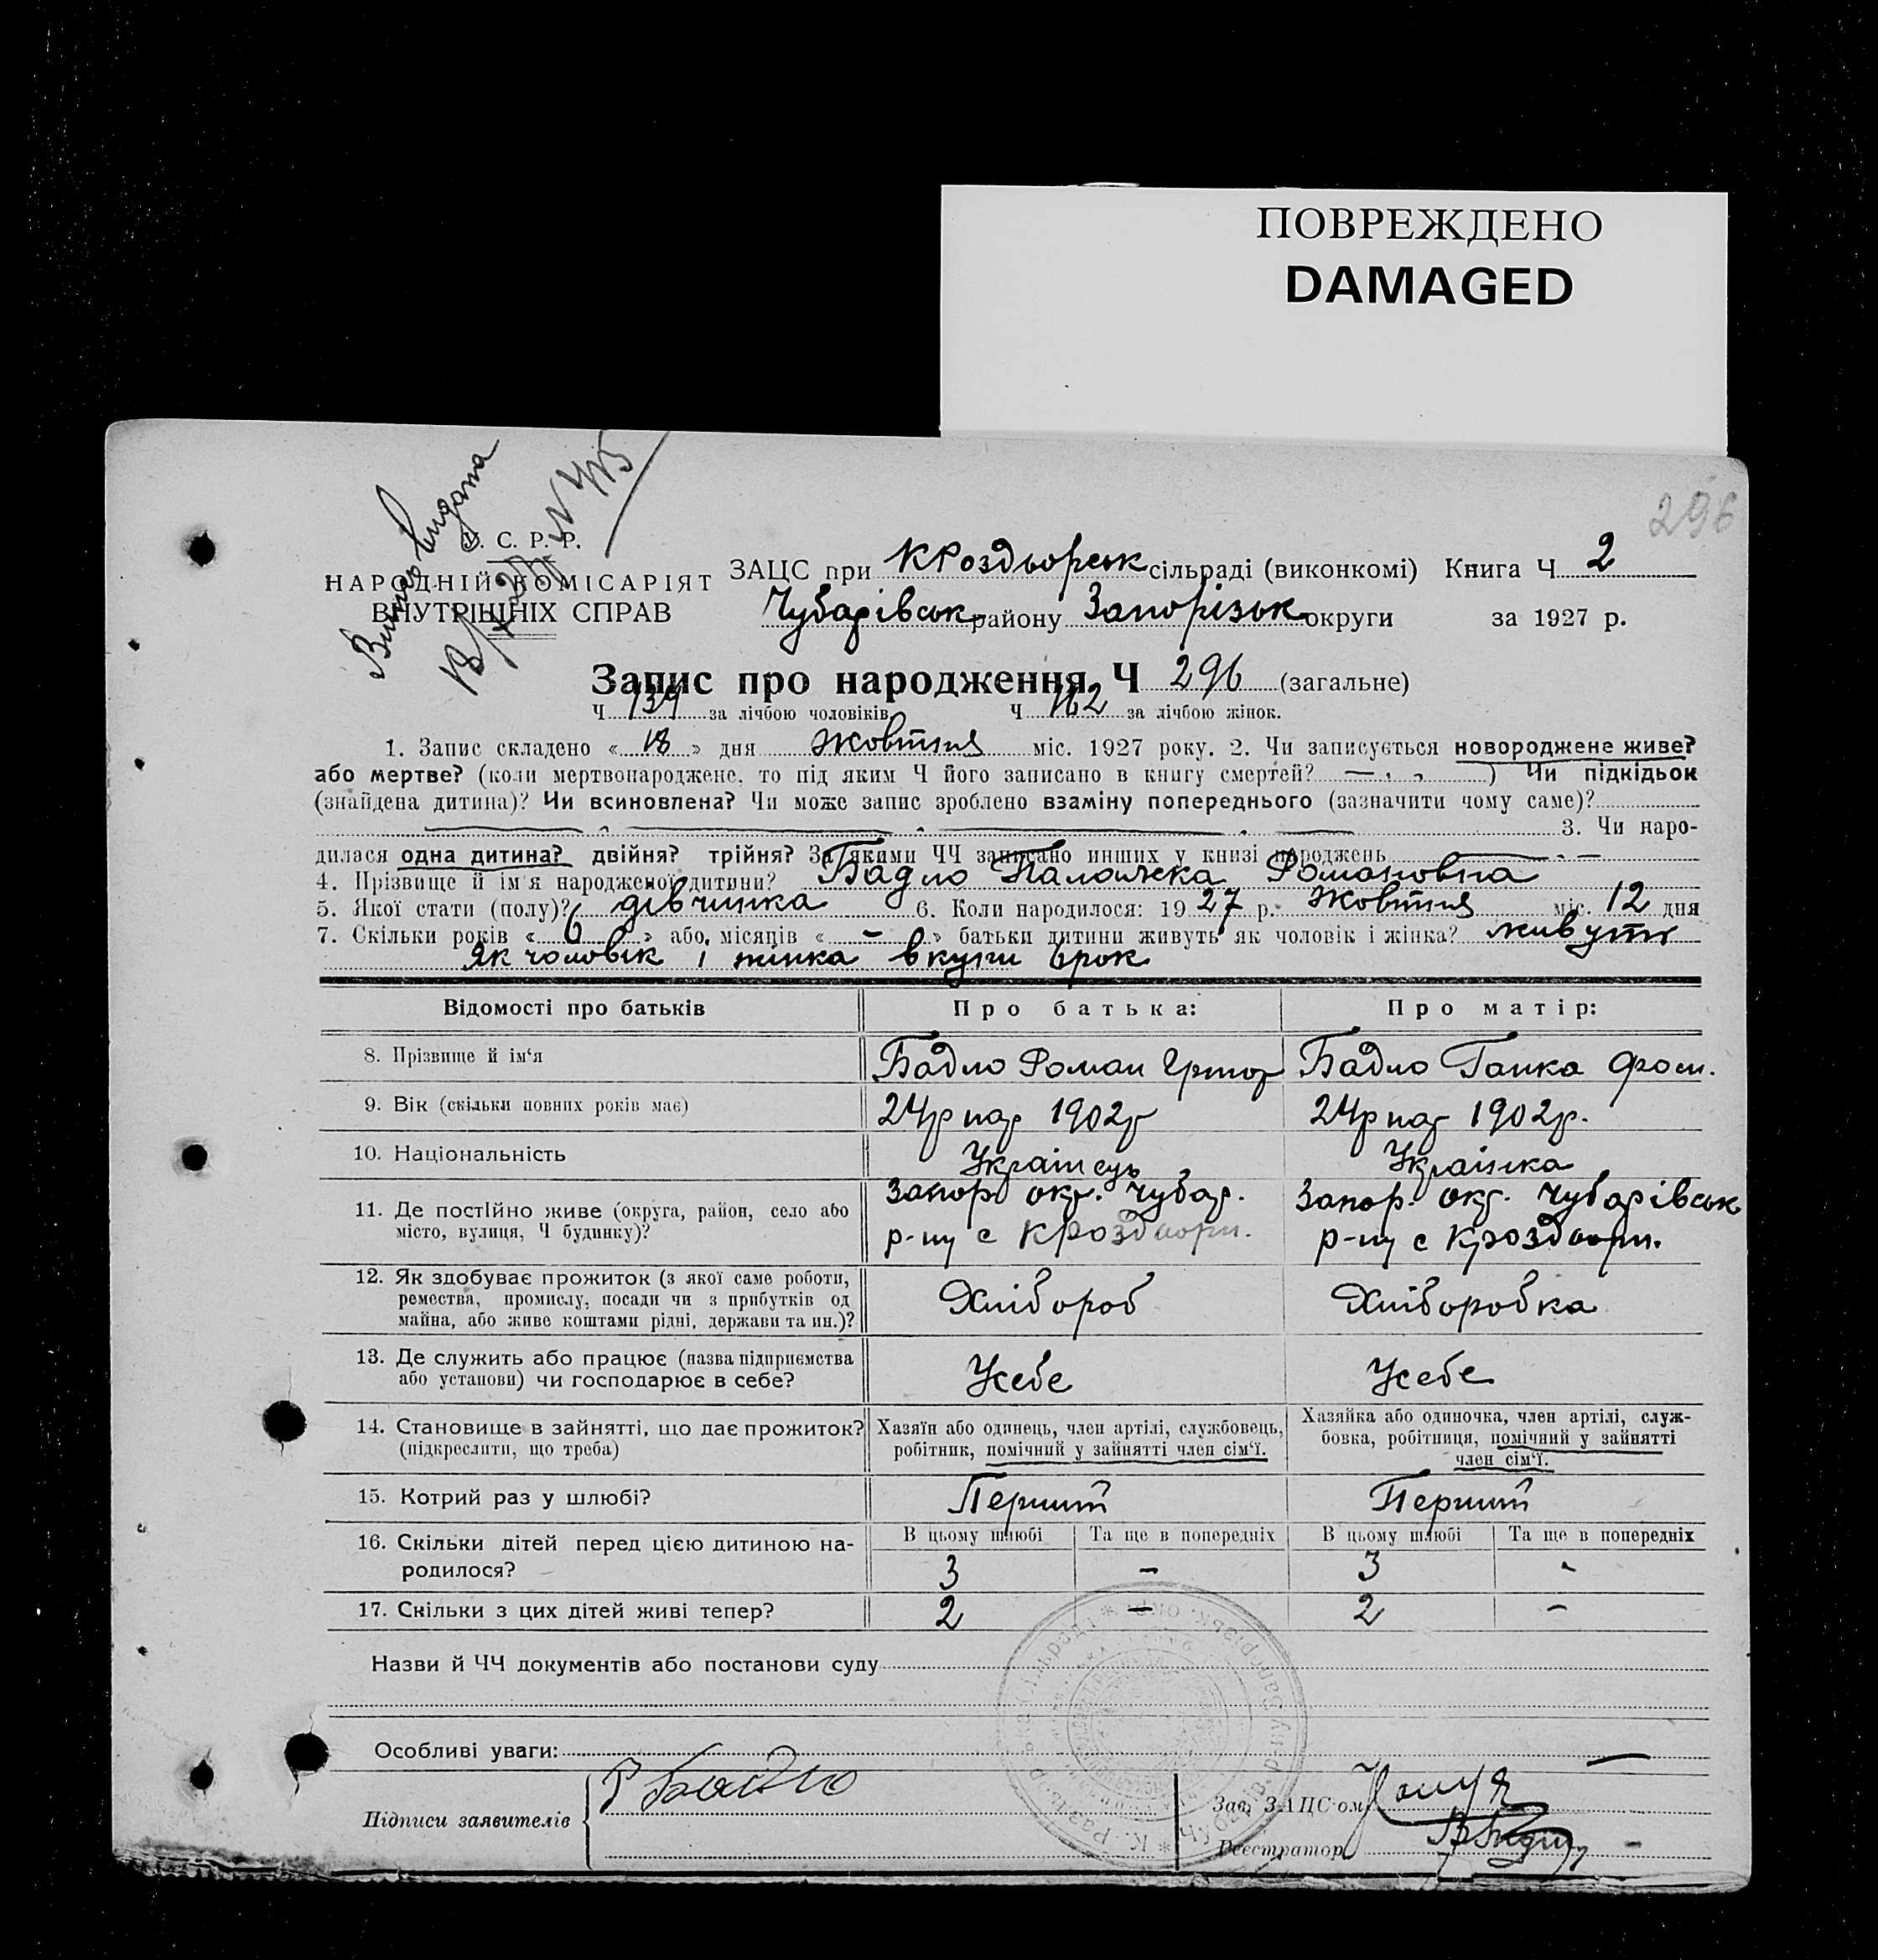 ПОВРЕЖДЕНО
DAMAGED
296
У. С. Р. Р.
НАРОДНІЙ КОМІСАРІЯТ
ВНУТРІШНІХ СПРАВ
ЗАЦС при КРоздьорськ сільраді (виконкомі) Книга Ч 2
Чубарівськ району Запорізьк округи за 1927 р.
Запис про народження Ч 296 (загальне)
Ч 139 за лічбою чоловіків Ч 162 за лічбою жінок.
1. Запис складено « 18 » дня Жовтня міс. 1927 року. 2. Чи записується новороджене живе?
або мертве? (коли мертвонароджене, то під яким Ч його записано в книгу смертей? — ) Чи підкідьок
(знайдена дитина)? Чи всиновлена? Чи може запис зроблено взаміну попереднього (зазначити чому саме)?
3. Чи наро-
дилася одна дитина? двійня? трійня? За якими ЧЧ записано инших у книзі народжень —
4. Прізвище й ім'я народженої дитини? Бадло Палажка Романовна
5. Якої стати (полу)? дівчинка 6. Коли народилося: 1927 р. Жовтня міс. 12 дня
7. Скільки років « 6 » або місяців « - » батьки дитини живуть як чоловік і жінка? живуть
як чоловік і жінка вкупи 6 рок
Відомості про батьків Про батька: Про матір:
8. Прізвище й ім'я Бадло Роман Бадло Ганка
9. Вік (скільки повних років має) 24р нар 1902р 24р нар 1902р.
10. Національність Українець Українка
11. Де постійно живе (округа, район, село або Запор окр. Чубар. Запор. окр. Чубарівськ
місто, вулиця, Ч будинку)? р-ну с КРоздьори. р-ну с КРоздьори.
12. Як здобуває прожиток (з якої саме роботи,
ремества, промислу, посади чи з прибутків од Хлібороб Хліборобка
майна, або живе коштами рідні, держави та ин.)?
13. Де служить або працює (назва підприємства
або установи) чи господарює в себе? Усебе Усебе
14. Становище в зайнятті, що дає прожиток? Хазяїн або одинець, член артілі, службовець, Хазяйка або одиночка, член артілі, служ-
(підкреслити, що треба) робітник, помічний у зайнятті член сім'ї. бовка, робітниця, помічний у зайнятті
член сім'ї.
15. Котрий раз у шлюбі? Перший Перший
16. Скільки дітей перед цією дитиною на- В цьому шлюбі Та ще в попередніх В цьому шлюбі Та ще в попередніх
родилося? 3 - 3 -
17. Скільки з цих дітей живі тепер? 2 - 2 -
Назви й ЧЧ документів або постанови суду
Особливі уваги:
Підписи заявителів Р Бадло
Зав. ЗАЦС'ом
Реєстратор